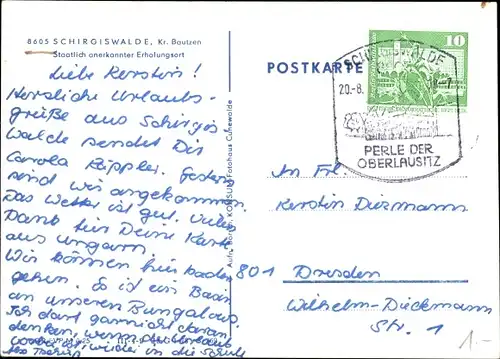 8605 SCHIRGISWALDE, Kr. Bautzen
Staatlich anerkannter Erholungsort
Liebe Kerstin!
Herzliche Urlaubs-
grüße aus Schirgis-
walde sendet Dir
Carola Rippler. Gestern
sind wir angekommen.
Das Wetter ist gut. Vielen
Dank für Deine Karte
aus Ungarn.
Wir können hier baden
gehen. Es ist ein Bach
an unseren Bungalows.
Ich darf garnicht daran
denken, wenn der Urlaub
wieder in die Schule
POSTKARTE
10
SCHIRGISWALDE
20.-8.
PERLE DER
OBERLAUSITZ
KONSUM-Fotohaus Cunewalde
An Frl.
Kerstin
801 Dresden
Wilhelm-Dieckmann
Str. 1
1.-